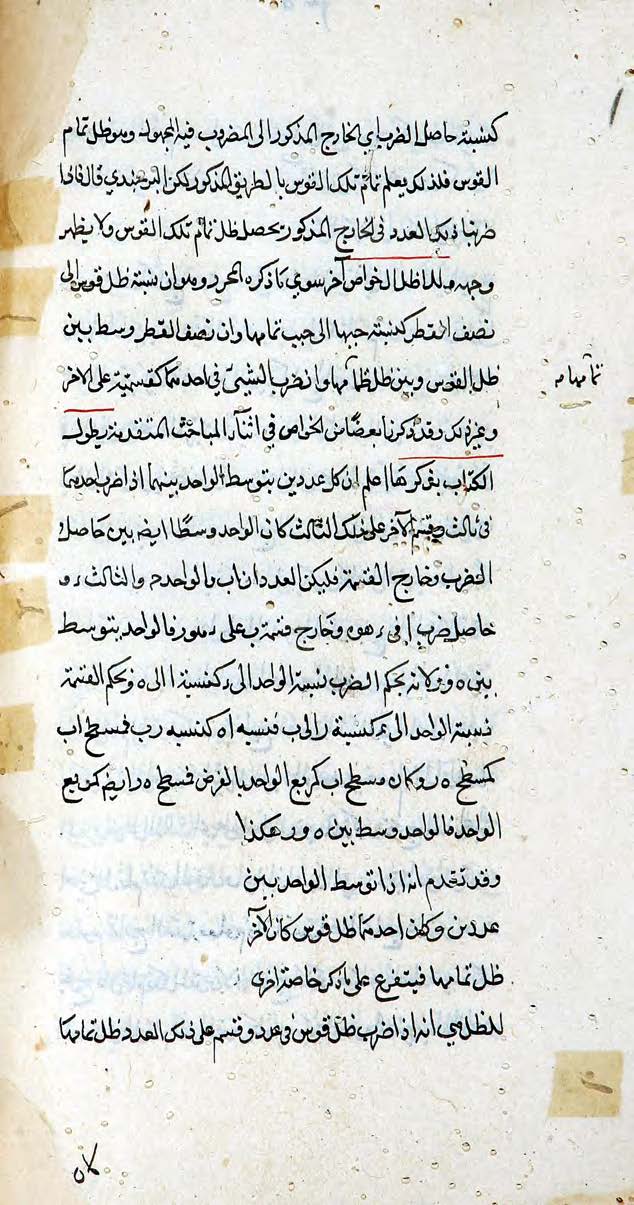 كنسبة حاصل الضرب اي الخارج المذكور الى المضروب فيه المجهول وهو ظل تمام
القوس فلذلك يعلم تمام تلك القوس بالطريق المذكور لكن البرجندي قال فاذا
ضربنا ذلك العدد في الخارج المذكور يحصل ظل تمام تلك القوس ولا يظهر
وجهه وللاظلال خواص آخر سوي ما ذكره المحرر وهو ان نسبة ظل قوس الى
نصف القطر كنسبة جيبها الى جيب تمامها وان نصف القطر وسط بين
ظل القوس وبين ظل تمامها وان ضرب الشيئ في احدهما كقسمته على الاخر
تمامها صه
وغير ذلك وقد ذكرنا بعضا من الخواص في اثناء المباحث المتقدمة يطول
الكتاب بذكرها اعلم ان كل عددين يتوسط الواحد بينهما اذا ضرب احدهما
في ثالث وقسم الآخر على ذلك الثالث كان الواحد وسطا ايضا بين حاصل
الضرب وخارج القسمة فليكن العددان اب والواحد ح والثالث ء و
حاصل ضرب ا في ء هو ه وخارج قسمة ب على ء هو ر فالواحد يتوسط
بين ه و ر لانه بحكم الضرب نسبة الواحد الى ء كنسبة ا الى ه وبحكم القسمة
نسبة الواحد الى ء كنسبة ر الى ب فنسبه اه كنسبه رب فسطح اب
كمسطح ه ر وكان مسطح اب كمربع الواحد بالفرض فسطح ه ر ايضا كمربع
الواحد فالواحد وسط بين ه و ر هكذا
وقد تقدم انه اذا توسط الواحد بين
عددين وكان احدهما ظل قوس كان الآخر
ظل تمامها فيتفرع على ما ذكر خاصة اخرى
للظل هي انه اذا ضرب ظل قوس في عدد وقسم على ذلك العدد ظل تمامها
كان